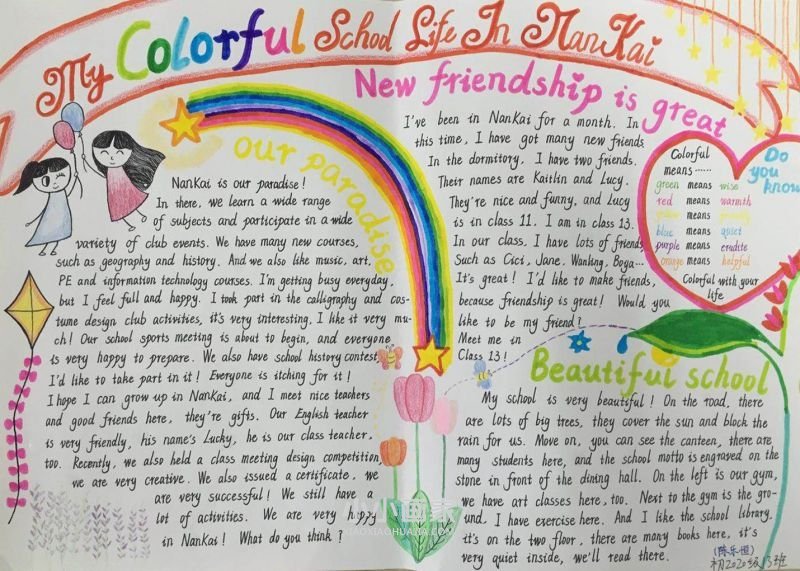 My Colorful School Life In NanKai
our paradise
NanKai is our paradise!
In there, we learn a wide range
of subjects and participate in a wide
variety of club events. We have many new courses,
such as geography and history. And we also like music, art,
PE and information technology courses. I'm getting busy everyday,
but I feel full and happy. I took part in the calligraphy and cos-
tume design club activities, it's very interesting, I like it very mu-
ch! Our school sports meeting is about to begin, and everyone
is very happy to prepare. We also have school history contest,
I'd like to take part in it! Everyone is itching for it!
I hope I can grow up in NanKai, and I meet nice teachers
and good friends here, they're gifts. Our English teacher
is very friendly, his name's Lucky, he is our class teacher,
too. Recently, we also held a class meeting design competition,
we are very creative. We also issued a certificate, we
are very successful! We still have a
lot of activities. We are very happy
in NanKai! What do you think?
New friendship is great
I've been in NanKai for a month. In
this time, I have got many new friends
In the dormitory, I have two friends.
Their names are Kaitlin and Lucy.
They're nice and funny, and Lucy
is in class 11. I am in class 13.
In our class, I have lots of friends
Such as Cici, Jane, Wanling, Boya...
It's great! I'd like to make friends,
because friendship is great! Would you
like to be my friend?
Meet me in
Class 13!
Do
you
know
Colorful
means ......
green means wise
red means warmth
means
blue means quiet
purple means erudite
orange means helpful
Colorful with your
life
Beautiful school
My school is very beautiful! On the road, there
are lots of big trees, they cover the sun and block the
rain for us. Move on, you can see the canteen, there are
many students here, and the school motto is engraved on the
stone in front of the dining hall. On the left is our gym,
we have art classes here, too. Next to the gym is the gro-
und, I have exercise here. And I like the school library,
it's on the two floor, there are many books here, it's
very quiet inside, we'll read there.
(陈乐恒)
初2020级13班
小小画家
XIAOXIAOHUAJIA.COM